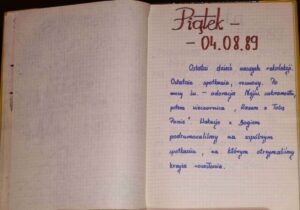 Piątek -
- 04.08.89
Ostatni dzień naszych rekolekcji.
Ostatnie spotkania, rozmowy. Po
mszy św. - adoracja Najśw. sakramentu,
potem wieczornica, "Razem z Tobą
Panie". Wakacje z Bogiem
podsumowaliśmy na wspólnym
spotkaniu, na którym otrzymaliśmy
krzyże